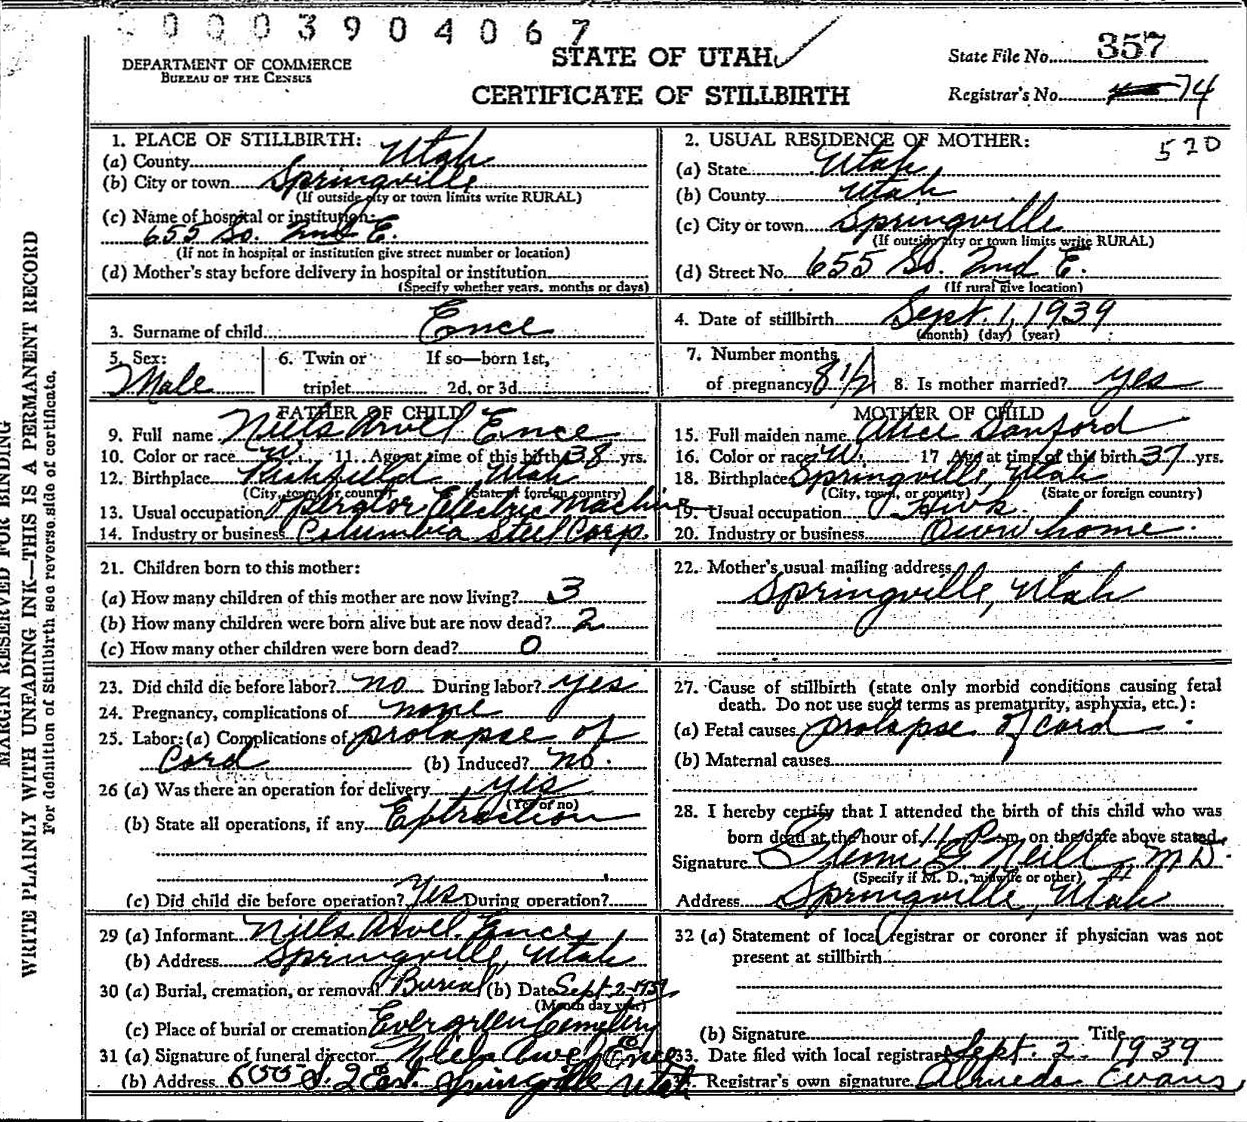 0003904067
DEPARTMENT OF COMMERCE
BUREAU OF THE CENSUS
STATE OF UTAH
CERTIFICATE OF STILLBIRTH
State File No. 357
Registrar's No. 74
1. PLACE OF STILLBIRTH:
(a) County Utah
(b) City or town Springville
(If outside city or town limits write RURAL)
(c) Name of hospital or institution:
655 So. 2nd E.
(If not in hospital or institution give street number or location)
(d) Mother's stay before delivery in hospital or institution
(Specify whether years, months or days)
2. USUAL RESIDENCE OF MOTHER:
520
(a) State Utah
(b) County Utah
(c) City or town Springville
(If outside city or town limits write RURAL)
(d) Street No. 655 So. 2nd E.
(If rural give location)
3. Surname of child Ence
4. Date of stillbirth Sept. 1, 1939
(month) (day) (year)
5. Sex: Male
6. Twin or triplet If so—born 1st, 2d, or 3d
7. Number months of pregnancy 8 1/2
8. Is mother married? yes
FATHER OF CHILD
9. Full name Niels Arvel Ence
10. Color or race W. 11. Age at time of this birth 38 yrs.
12. Birthplace Richfield Utah
(City, town, or county) (State of foreign country)
13. Usual occupation Operator Electric Machine
14. Industry or business Columbia Steel Corp.
MOTHER OF CHILD
15. Full maiden name Alice Sanford
16. Color or race W. 17 Age at time of this birth 37 yrs.
18. Birthplace Springville, Utah
(City, town, or county) (State or foreign country)
19. Usual occupation Hwk.
20. Industry or business Own home.
21. Children born to this mother:
(a) How many children of this mother are now living? 3
(b) How many children were born alive but are now dead? 2
(c) How many other children were born dead? 0
22. Mother's usual mailing address
Springville, Utah
23. Did child die before labor? no During labor? yes
24. Pregnancy, complications of none
25. Labor: (a) Complications of prolapse of
Cord (b) Induced? no.
26 (a) Was there an operation for delivery yes
(Yes or no)
(b) State all operations, if any Extraction
(c) Did child die before operation? Yes During operation?
27. Cause of stillbirth (state only morbid conditions causing fetal
death. Do not use such terms as prematurity, asphyxia, etc.):
(a) Fetal causes prolapse of cord
(b) Maternal causes
28. I hereby certify that I attended the birth of this child who was
born dead at the hour of 11 P. m. on the date above stated.
Signature Glenn G Neill M D.
(Specify if M. D., midwife or other)
Address Springville, Utah
29 (a) Informant Niels Arvel Ence
(b) Address Springville, Utah
30 (a) Burial, cremation, or removal Burial (b) Date Sept-2-1939
(Month day year)
(c) Place of burial or cremation Evergreen Cemetery
31 (a) Signature of funeral director Niels Arvel Ence
(b) Address 655 S. 2 East. Springville Utah
32 (a) Statement of local registrar or coroner if physician was not
present at stillbirth
(b) Signature Title
33. Date filed with local registrar Sept. 2 1939
Registrar's own signature Almeda Evans
MARGIN RESERVED FOR BINDING
WRITE PLAINLY WITH UNFADING INK—THIS IS A PERMANENT RECORD
For definition of Stillbirth see reverse side of certificate.